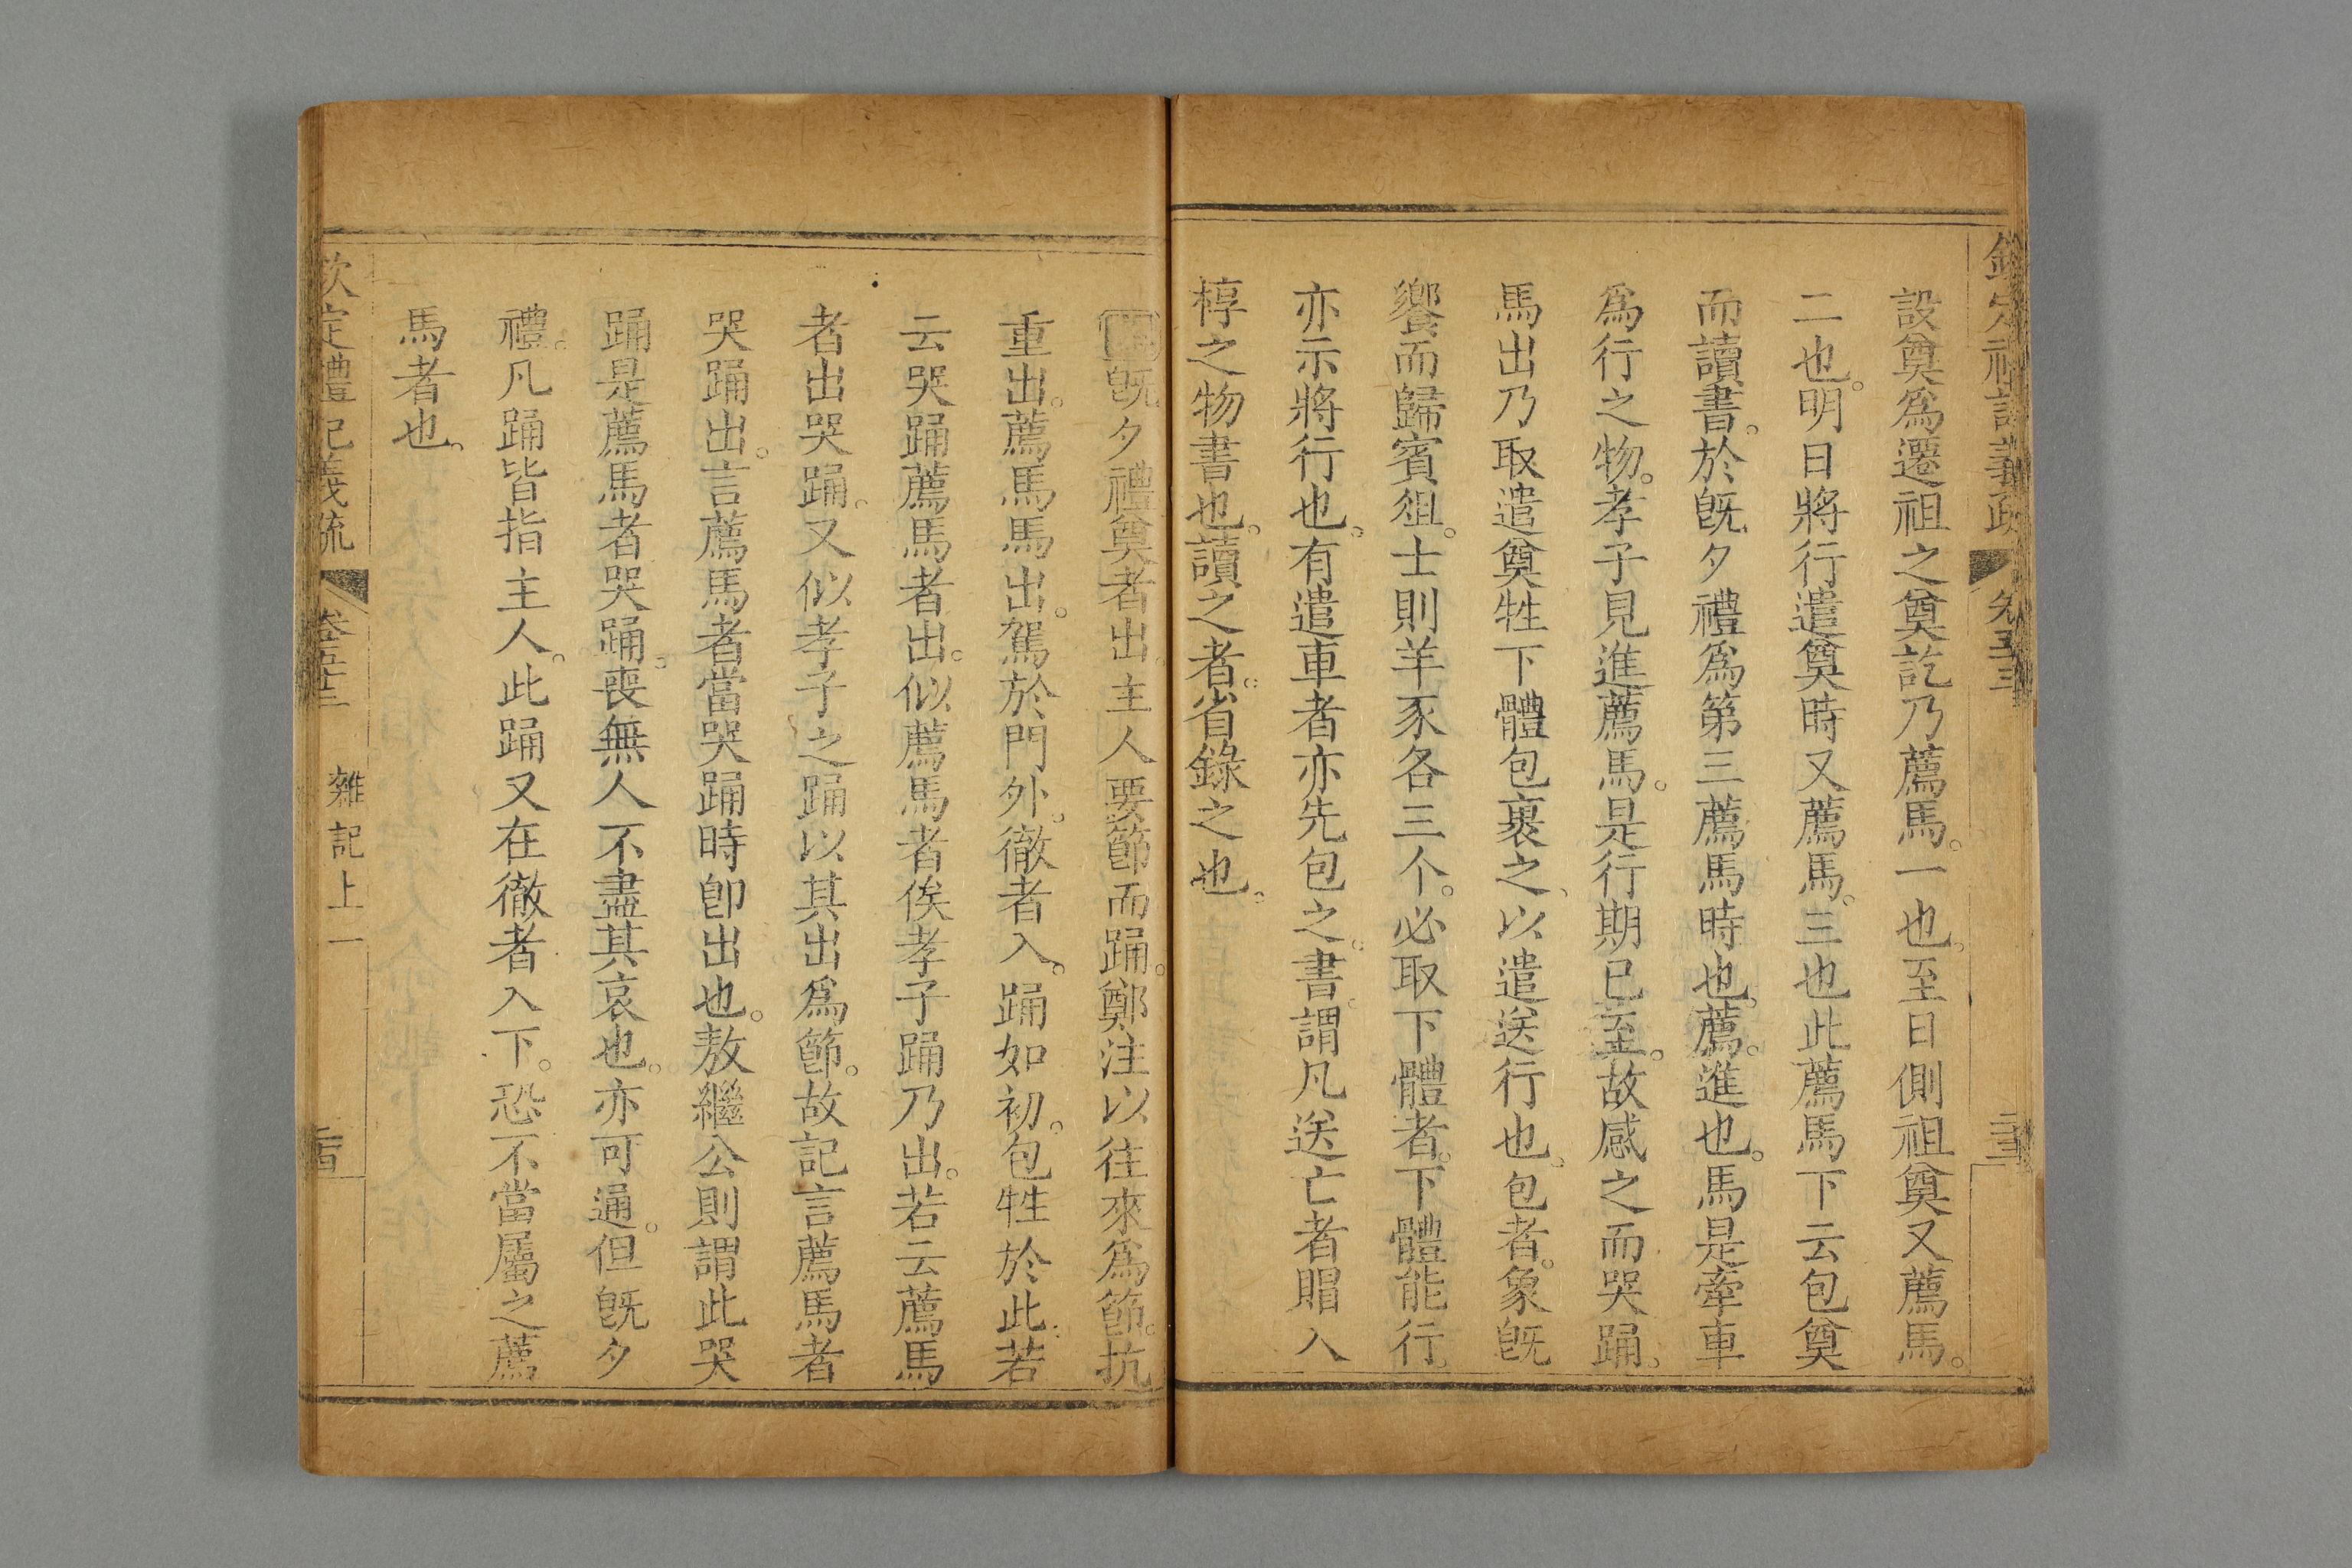 設奠爲遷祖之奠訖乃薦馬。一也。至日側祖奠又薦馬。
二也。明日將行遣奠時又薦馬。三也此薦馬下云包奠
而讀書。於旣夕禮爲第三薦馬時也。薦。進也。馬是牽車
爲行之物。孝子見進薦馬。是行期已至。故感之而哭踊。
馬出乃取遣奠牲下體包裹之、以遣送行也。包者。象旣
饗而歸賓俎。士則羊豕各三个。必取下體者。下體能行
亦示將行也。有遣車者亦先包之。書。謂凡送亡者賵入
椁之物書也。讀之者。省錄之也。
旣夕禮奠者出。主人要節而踊。鄭注以往來爲節。抗
重出。薦馬馬出。駕於門外。徹者入。踊如初。包牲於此。若
云哭踊薦馬者出。似薦馬者俟孝子踊乃出。若云薦馬
者出哭踊。又似孝子之踊以其出爲節。故記言薦馬者
哭踊出。言薦馬者當哭踊時卽出也。敖繼公則謂此哭
踊是薦馬者哭踊。喪無人不盡其哀也。亦可通。但旣夕
禮。凡踊皆指主人。此踊又在徹者入下。恐不當屬之薦
馬者也。
欽定禮記義疏 卷五十三 雜記上一